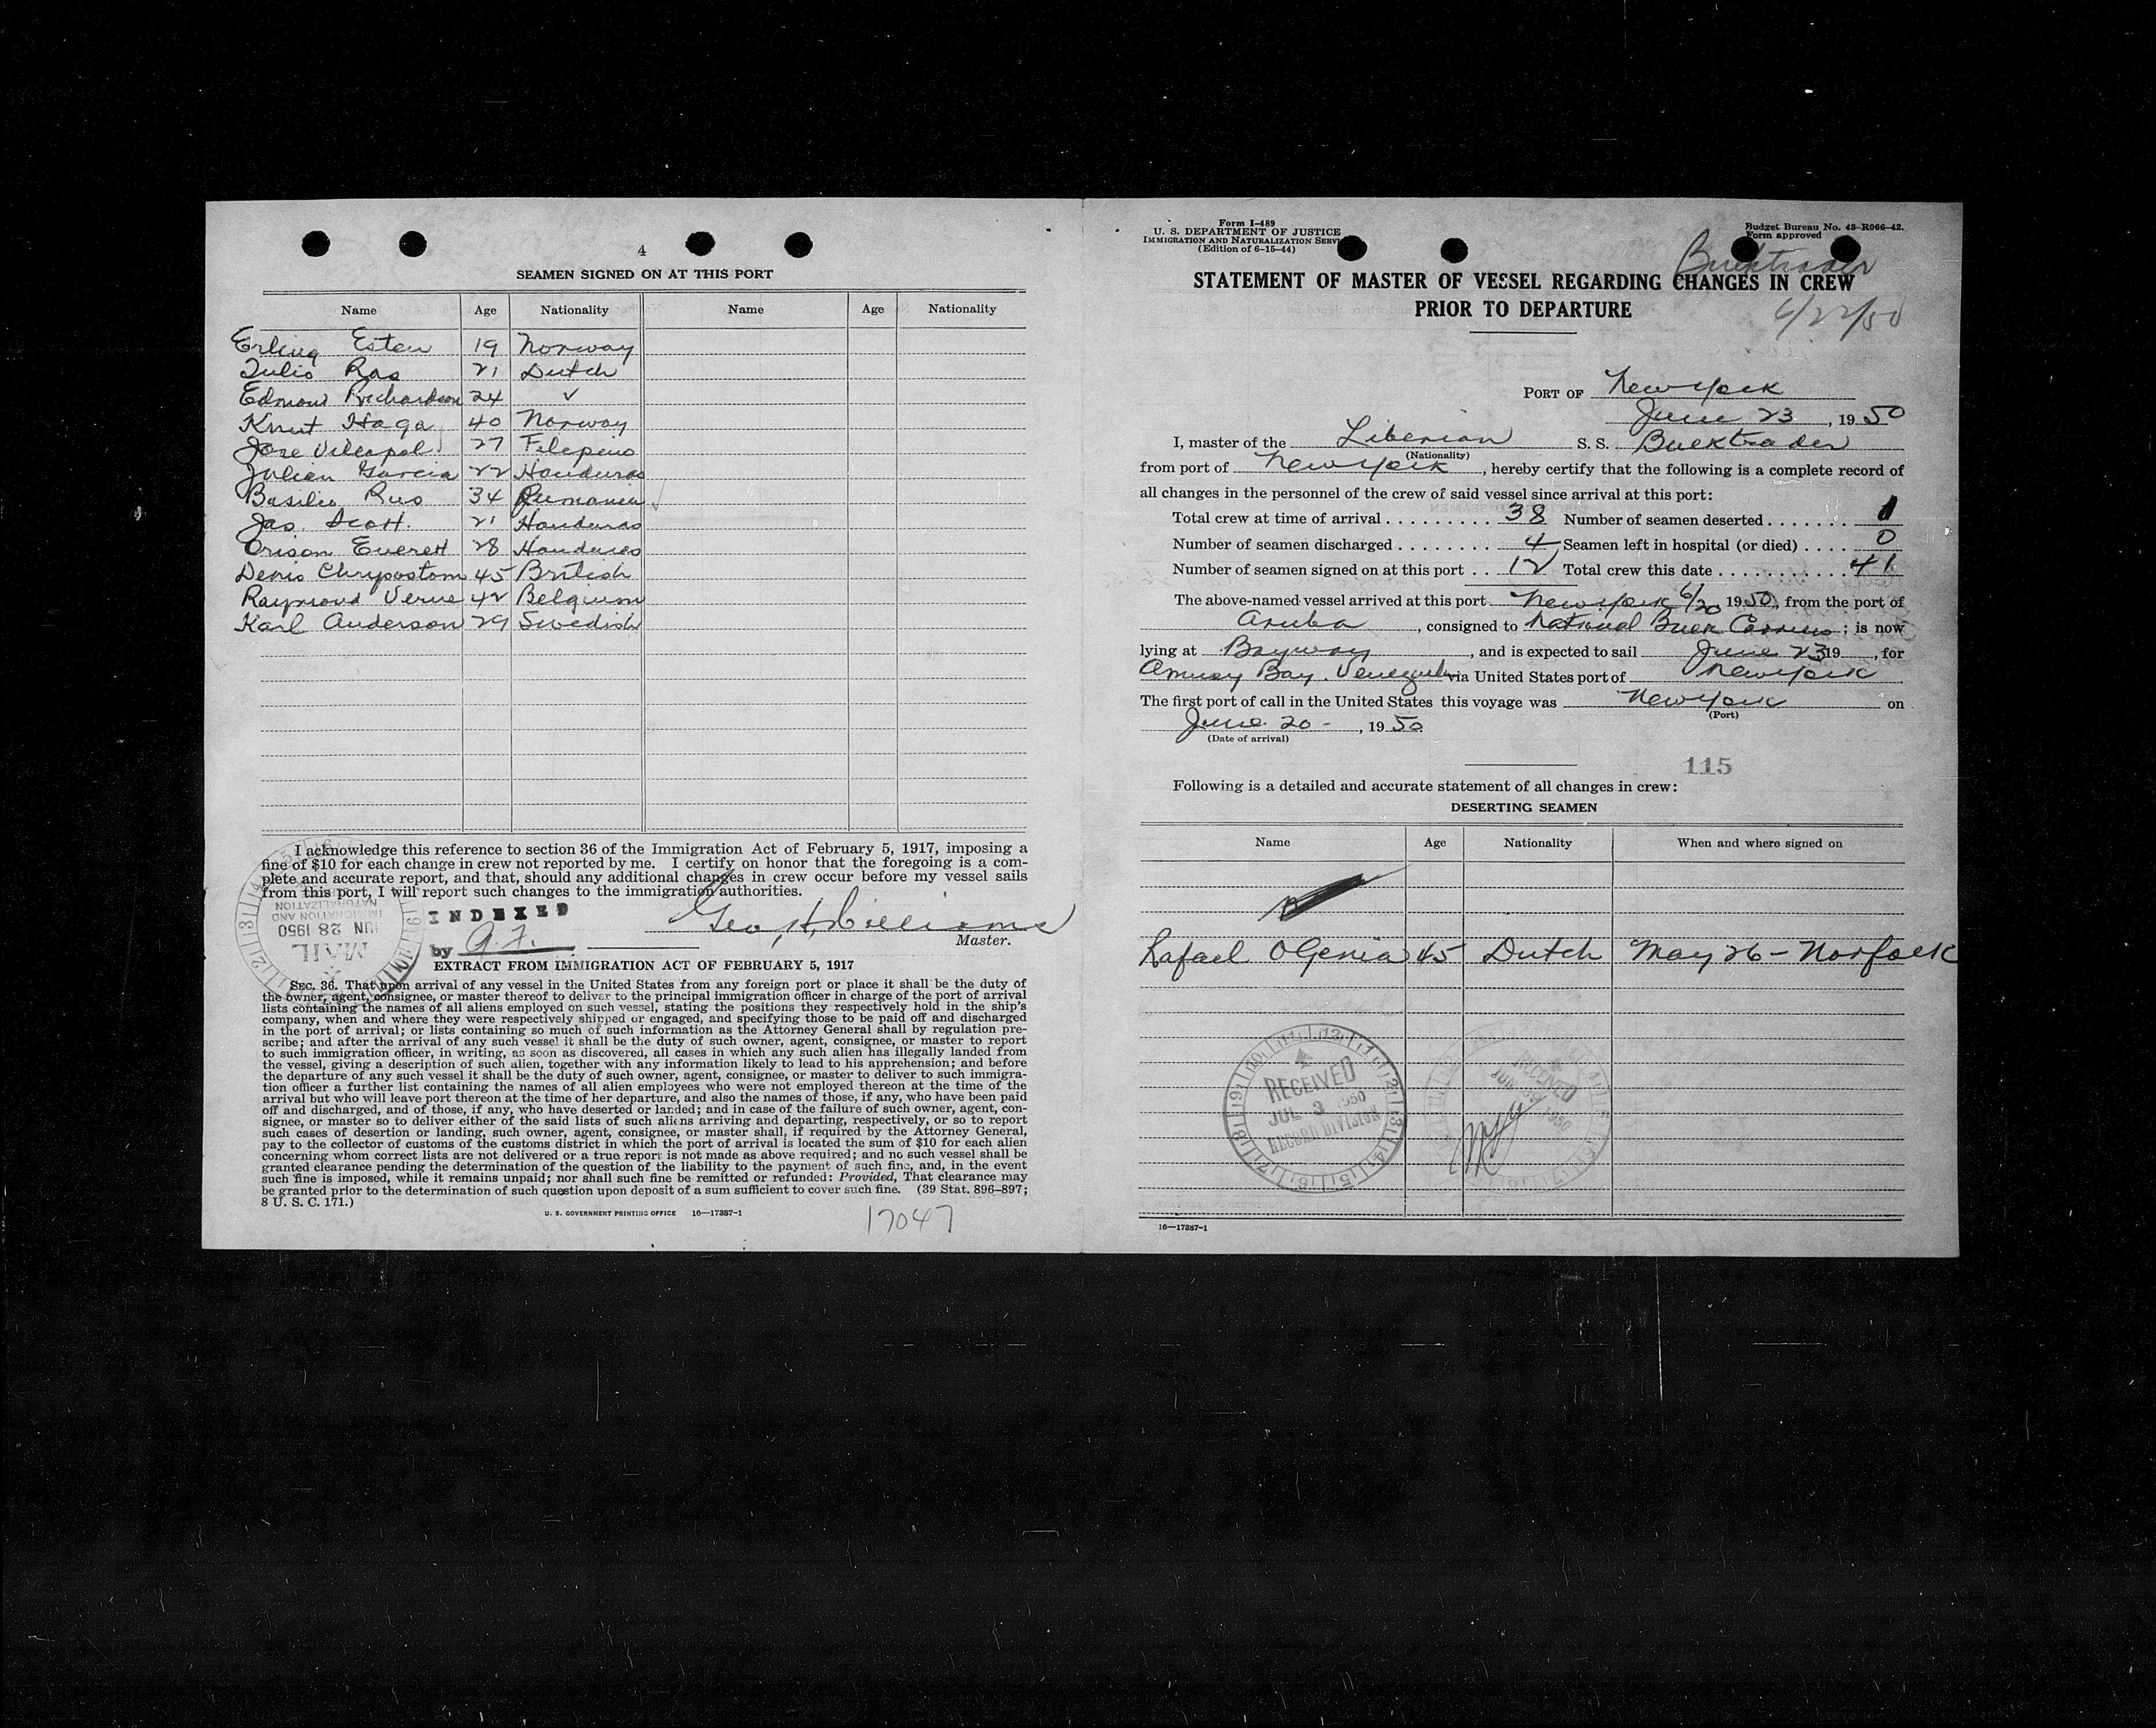 4
SEAMEN SIGNED ON AT THIS PORT
Name Age Nationality Name Age Nationality
Erling Esten 19 Norway
Julio Ras 21 Dutch
Edmond Richardson 24 ✓
Knut Haga 40 Norway
Jose 27 Filepino
Julian Garcia 22 Honduras
Basilio Rus 34 Rumania
Jas. Scott. 21 Honduras
Orison Everett 28 Honduras
Denis Chrysostom 45 British
Raymond Verne 42 Belguim
Karl Anderson 29 Swedish
I acknowledge this reference to section 36 of the Immigration Act of February 5, 1917, imposing a
fine of $10 for each change in crew not reported by me. I certify on honor that the foregoing is a com-
plete and accurate report, and that, should any additional changes in crew occur before my vessel sails
from this port, I will report such changes to the immigration authorities.
IMMIGRATION AND
NATURALIZATION
JUN 28 1950
MAIL
INDEXED
by A.F.
Geo. H. Williams
Master.
EXTRACT FROM IMMIGRATION ACT OF FEBRUARY 5, 1917
SEC. 36. That upon arrival of any vessel in the United States from any foreign port or place it shall be the duty of
the owner, agent, consignee, or master thereof to deliver to the principal immigration officer in charge of the port of arrival
lists containing the names of all aliens employed on such vessel, stating the positions they respectively hold in the ship's
company, when and where they were respectively shipped or engaged, and specifying those to be paid off and discharged
in the port of arrival; or lists containing so much of such information as the Attorney General shall by regulation pre-
scribe; and after the arrival of any such vessel it shall be the duty of such owner, agent, consignee, or master to report
to such immigration officer, in writing, as soon as discovered, all cases in which any such alien has illegally landed from
the vessel, giving a description of such alien, together with any information likely to lead to his apprehension; and before
the departure of any such vessel it shall be the duty of such owner, agent, consignee, or master to deliver to such immigra-
tion officer a further list containing the names of all alien employees who were not employed thereon at the time of the
arrival but who will leave port thereon at the time of her departure, and also the names of those, if any, who have been paid
off and discharged, and of those, if any, who have deserted or landed; and in case of the failure of such owner, agent, con-
signee, or master so to deliver either of the said lists of such aliens arriving and departing, respectively, or so to report
such cases of desertion or landing, such owner, agent, consignee, or master shall, if required by the Attorney General,
pay to the collector of customs of the customs district in which the port of arrival is located the sum of $10 for each alien
concerning whom correct lists are not delivered or a true report is not made as above required; and no such vessel shall be
granted clearance pending the determination of the question of the liability to the payment of such fine, and, in the event
such fine is imposed, while it remains unpaid; nor shall such fine be remitted or refunded: Provided, That clearance may
be granted prior to the determination of such question upon deposit of a sum sufficient to cover such fine. (39 Stat. 896–897;
8 U. S. C. 171.)
U. S. GOVERNMENT PRINTING OFFICE 16—17387-1
17047
Form I-489
U. S. DEPARTMENT OF JUSTICE
IMMIGRATION AND NATURALIZATION SERVI
(Edition of 6-15-44)
Budget Bureau No. 43-R066-42.
Form approved
Bulktrader
STATEMENT OF MASTER OF VESSEL REGARDING CHANGES IN CREW
PRIOR TO DEPARTURE
6/22/50
PORT OF New York
June 23, 1950
I, master of the Liberian S. S. Bulktrader
(Nationality)
from port of New York, hereby certify that the following is a complete record of
all changes in the personnel of the crew of said vessel since arrival at this port:
Total crew at time of arrival 38 Number of seamen deserted 1
Number of seamen discharged 4 Seamen left in hospital (or died) 0
Number of seamen signed on at this port 12 Total crew this date 41
The above-named vessel arrived at this port New York 6/20 1950, from the port of
Aruba, consigned to National Bulk Carriers; is now
lying at Bayway, and is expected to sail June 23 19, for
Amuay Bay. Venezuela via United States port of New York
The first port of call in the United States this voyage was New York on
(Port)
June 20 -, 1950
(Date of arrival)
115
Following is a detailed and accurate statement of all changes in crew:
DESERTING SEAMEN
Name Age Nationality When and where signed on
Rafael OGenia 45 Dutch May 26 - Norfolk
RECEIVED
JUL 3 1950
RECORD DIVISION
RECEIVED
1950
16—17387-1